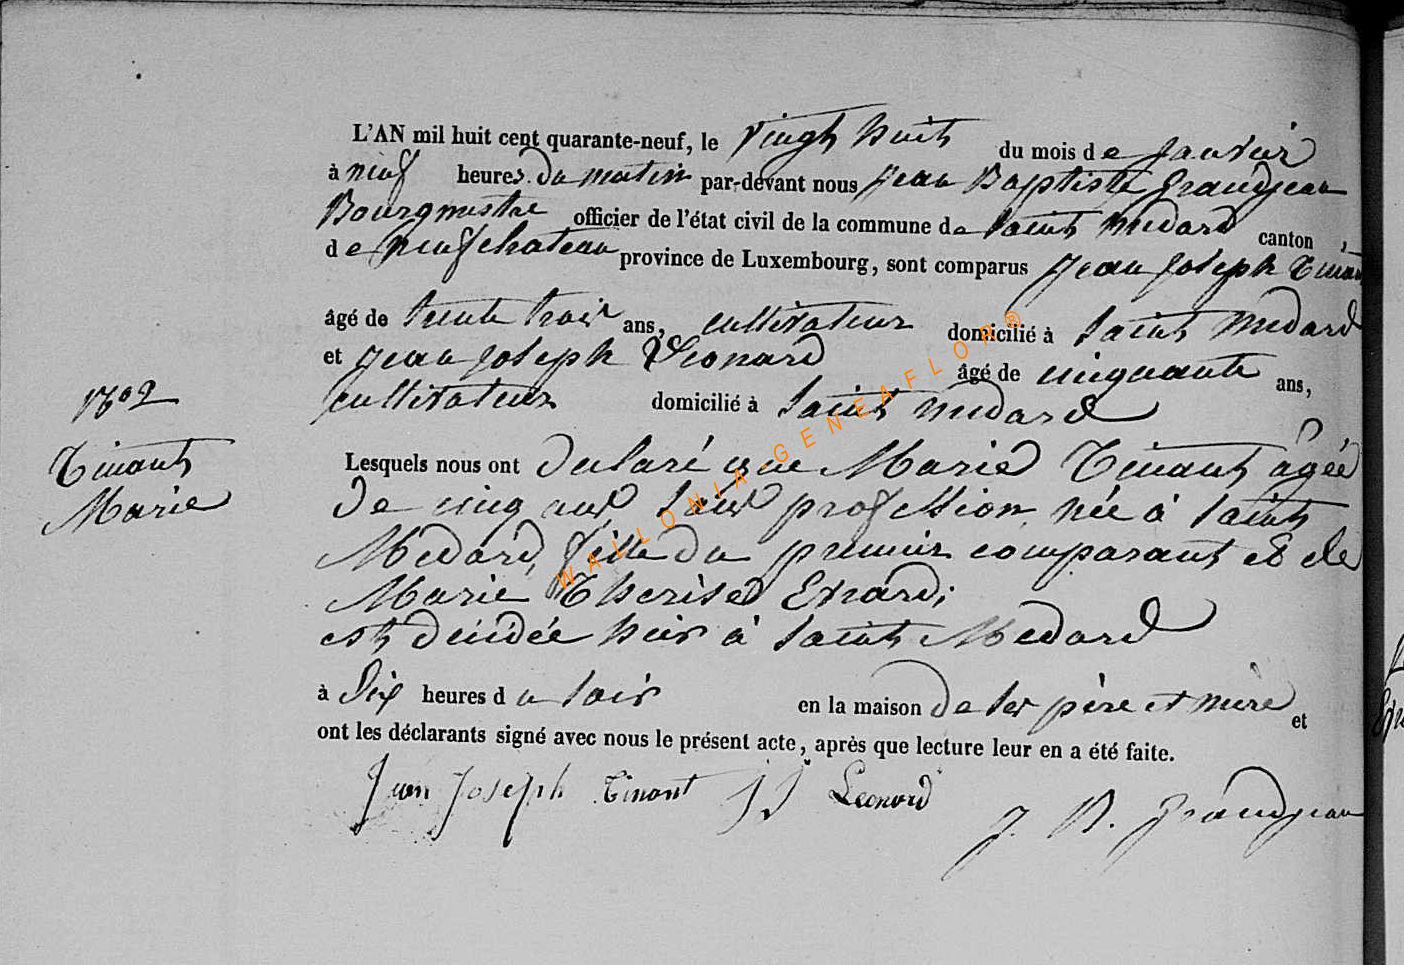 L'AN mil huit cent quarante-neuf, le vingt huit du mois de janvier
à neuf heures du matin par-devant nous Jean Baptiste Grandjean
Bourgmestre officier de l'état civil de la commune de Saint Médard canton
de Neufchateau province de Luxembourg, sont comparus Jean Joseph Tinant
âgé de trente trois ans, cultivateur domicilié à Saint Médard
et Jean Joseph Léonard âgé de cinquante ans,
cultivateur domicilié à Saint Médard
1602
Tinant
Marie
Lesquels nous ont declaré que Marie Tinant âgée
de cinq ans sans profession née à Saint
Medard, fille du premier comparant et de
Marie Therèse Evrard;
est décidée hier à Saint Medard
à Dix heures du soir en la maison de ses père et mère et
ont les déclarants signé avec nous le présent acte, après que lecture leur en a été faite.
Jean Joseph Tinant JJ Leonard
J. B. Grandjean
WALLONIA GENEAFLOR®